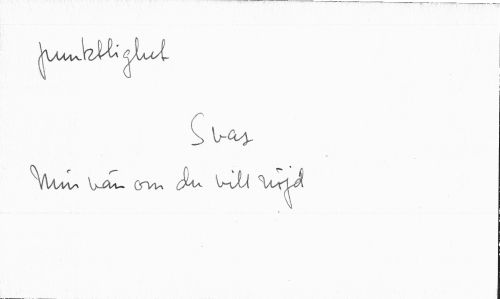 punktlighet
Svar
Min vän om du vill nöjd